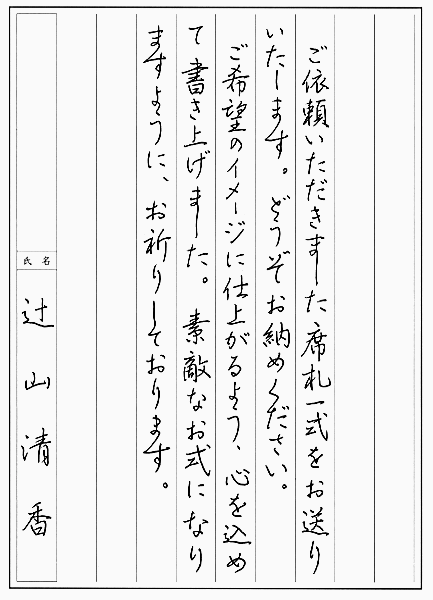 ご依頼いただきました席札一式をお送り
いたします。どうぞお納めください。
ご希望のイメージに仕上がるよう、心を込め
て書き上げました。素敵なお式になり
ますように、お祈りしております。
氏名
辻山清香